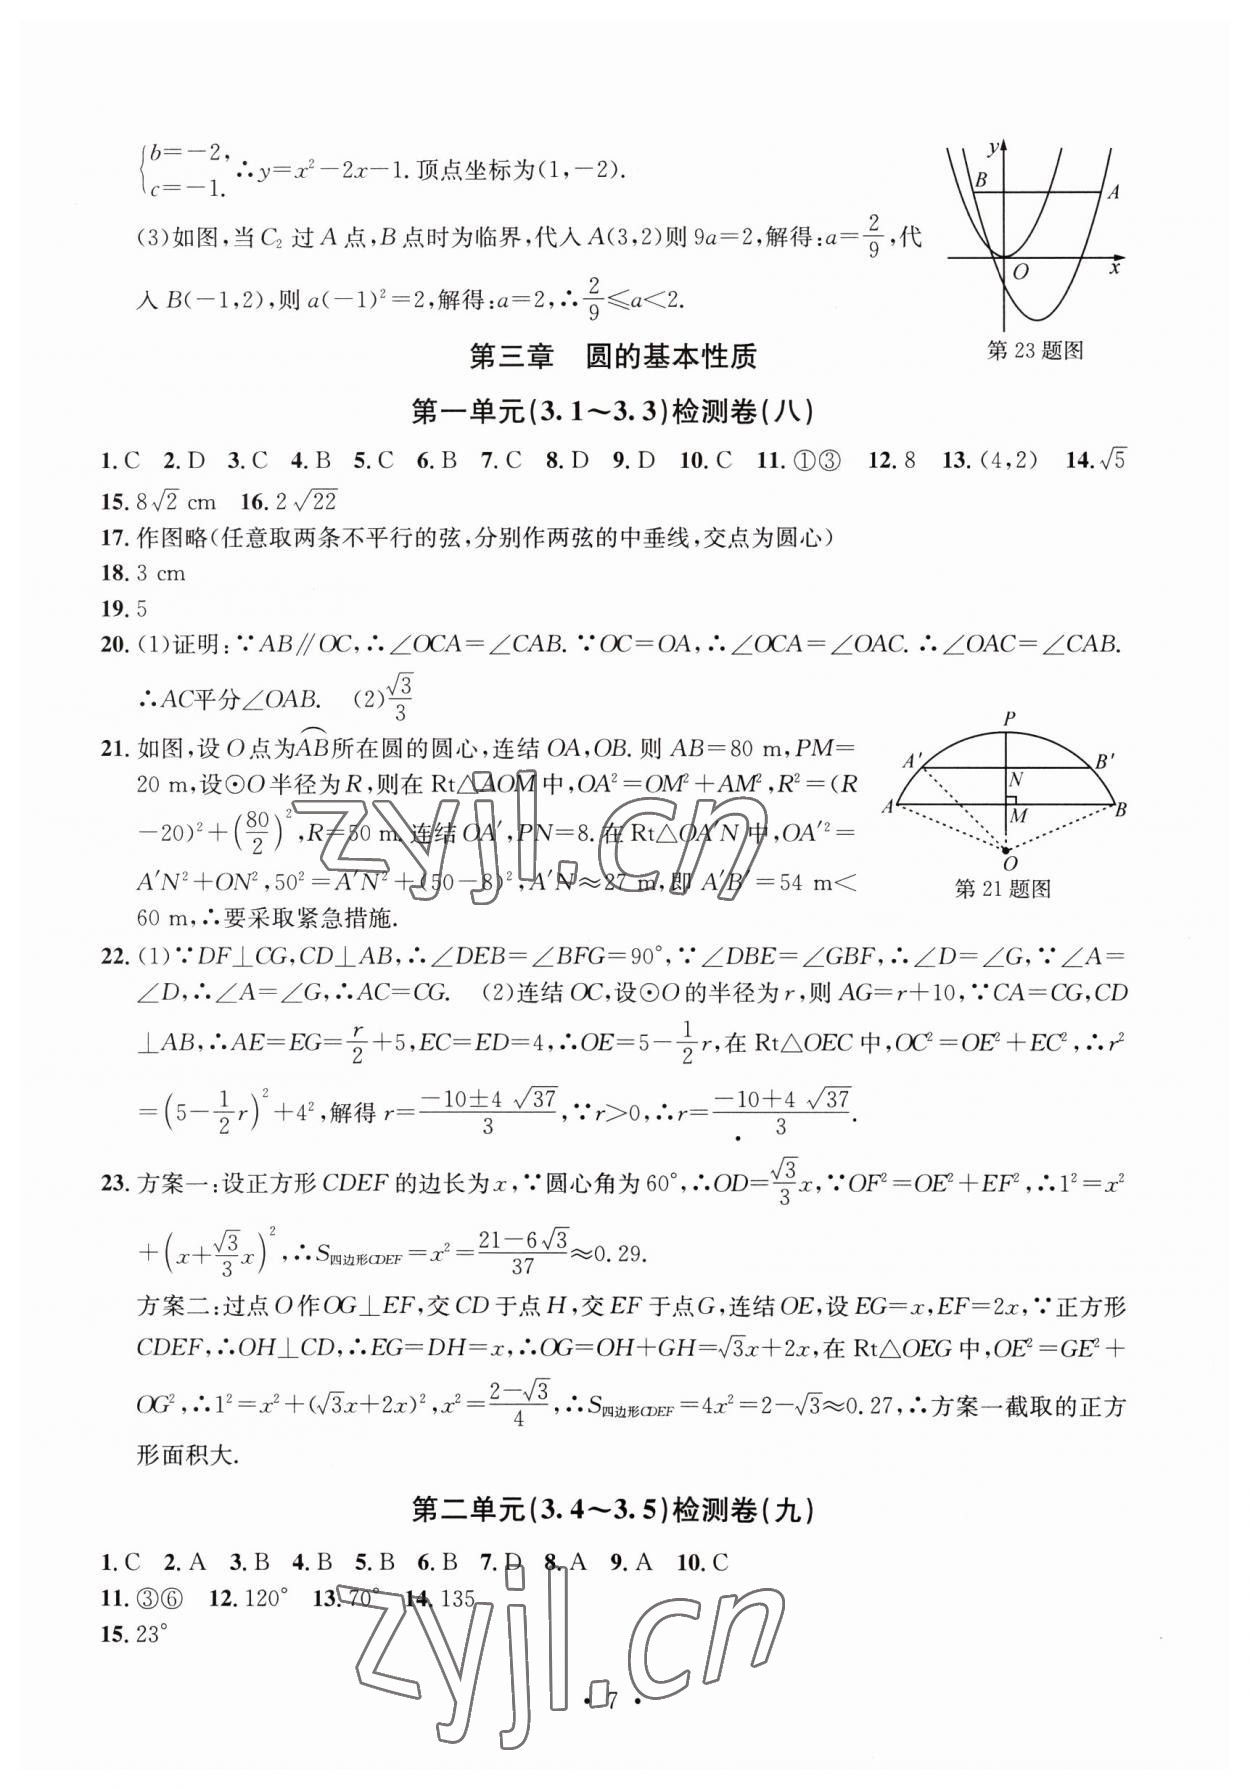 {b=-2,
c=-1. ∴y=x²-2x-1.顶点坐标为(1,-2).
(3)如图,当C₂过A点,B点时为临界,代入A(3,2)则9a=2,解得:a=2/9,代
入B(-1,2),则a(-1)²=2,解得:a=2,∴2/9≤a<2.
y
B
A
O
x
第23题图
第三章 圆的基本性质
第一单元(3.1~3.3)检测卷(八)
1.C 2.D 3.C 4.B 5.C 6.B 7.C 8.D 9.D 10.C 11.①③ 12.8 13.(4,2) 14.√5
15.8√2 cm 16.2√22
17.作图略(任意取两条不平行的弦,分别作两弦的中垂线,交点为圆心)
18.3 cm
19.5
20.(1)证明:∵AB∥OC,∴∠OCA=∠CAB.∵OC=OA,∴∠OCA=∠OAC.∴∠OAC=∠CAB.
∴AC平分∠OAB. (2)√3/3
21.如图,设O点为⌒AB所在圆的圆心,连结OA,OB.则AB=80 m,PM=
20 m,设⊙O半径为R,则在Rt△AOM中,OA²=OM²+AM²,R²=(R
-20)²+(80/2)²,R=50 m.连结OA′,PN=8.在Rt△OA′N中,OA′²=
A′N²+ON²,50²=A′N²+(50-8)²,A′N≈27 m,即A′B′=54 m<
60 m,∴要采取紧急措施.
P
A′
B′
N
A
M
B
O
第21题图
22.(1)∵DF⊥CG,CD⊥AB,∴∠DEB=∠BFG=90°,∵∠DBE=∠GBF,∴∠D=∠G,∵∠A=
∠D,∴∠A=∠G,∴AC=CG. (2)连结OC,设⊙O的半径为r,则AG=r+10,∵CA=CG,CD
⊥AB,∴AE=EG=r/2+5,EC=ED=4,∴OE=5-1/2r,在Rt△OEC中,OC²=OE²+EC²,∴r²
=(5-1/2r)²+4²,解得r=(-10±4√37)/3,∵r>0,∴r=(-10+4√37)/3.
23.方案一:设正方形CDEF的边长为x,∵圆心角为60°,∴OD=√3/3x,∵OF²=OE²+EF²,∴1²=x²
+(x+√3/3x)²,∴S四边形CDEF=x²=(21-6√3)/37≈0.29.
方案二:过点O作OG⊥EF,交CD于点H,交EF于点G,连结OE,设EG=x,EF=2x,∵正方形
CDEF,∴OH⊥CD,∴EG=DH=x,∴OG=OH+GH=√3x+2x,在Rt△OEG中,OE²=GE²+
OG²,∴1²=x²+(√3x+2x)²,x²=(2-√3)/4,∴S四边形CDEF=4x²=2-√3≈0.27,∴方案一截取的正方
形面积大.
第二单元(3.4~3.5)检测卷(九)
1.C 2.A 3.B 4.B 5.B 6.B 7.D 8.A 9.A 10.C
11.③⑥ 12.120° 13.70° 14.135
15.23°
• 7 •
zyjl.cn
zyjl.cn